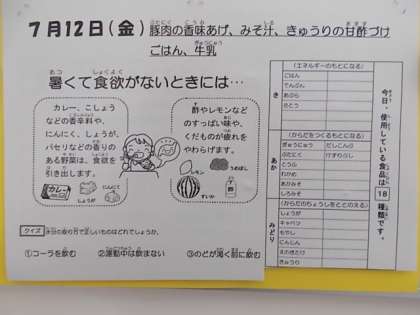 7月12日(金) 豚肉の香味あげ、みそ汁、きゅうりの甘酢づけ
ごはん、牛乳
暑くて食欲がないときには…
カレー、こしょう
などの香辛料や、
にんにく、しょうが、
パセリなどの香りの
ある野菜は、食欲を
引き出します。
カレー
しょうが
にんにく
酢やレモンなど
のすっぱい味や、
くだものが疲れを
やわらげます。
レモン
うめぼし
すいか
酢
クイズ
水分の取り方で正しいものはどれでしょうか。
①コーラを飲む ②運動中は飲まない ③のどが渇く前に飲む
今日、使用している食品は18種類です。
き
(エネルギーのもとになる)
ごはん
でんぷん
あぶら
さとう
あか
(からだをつくるもとになる)
ぎゅうにゅう だしこんぶ
ぶたにく けずりぶし
とうふ
わかめ
あかみそ
しろみそ
みどり
(からだのちょうしをととのえる)
しょうが
キャベツ
もやし
にんじん
えのきたけ
きゅうり